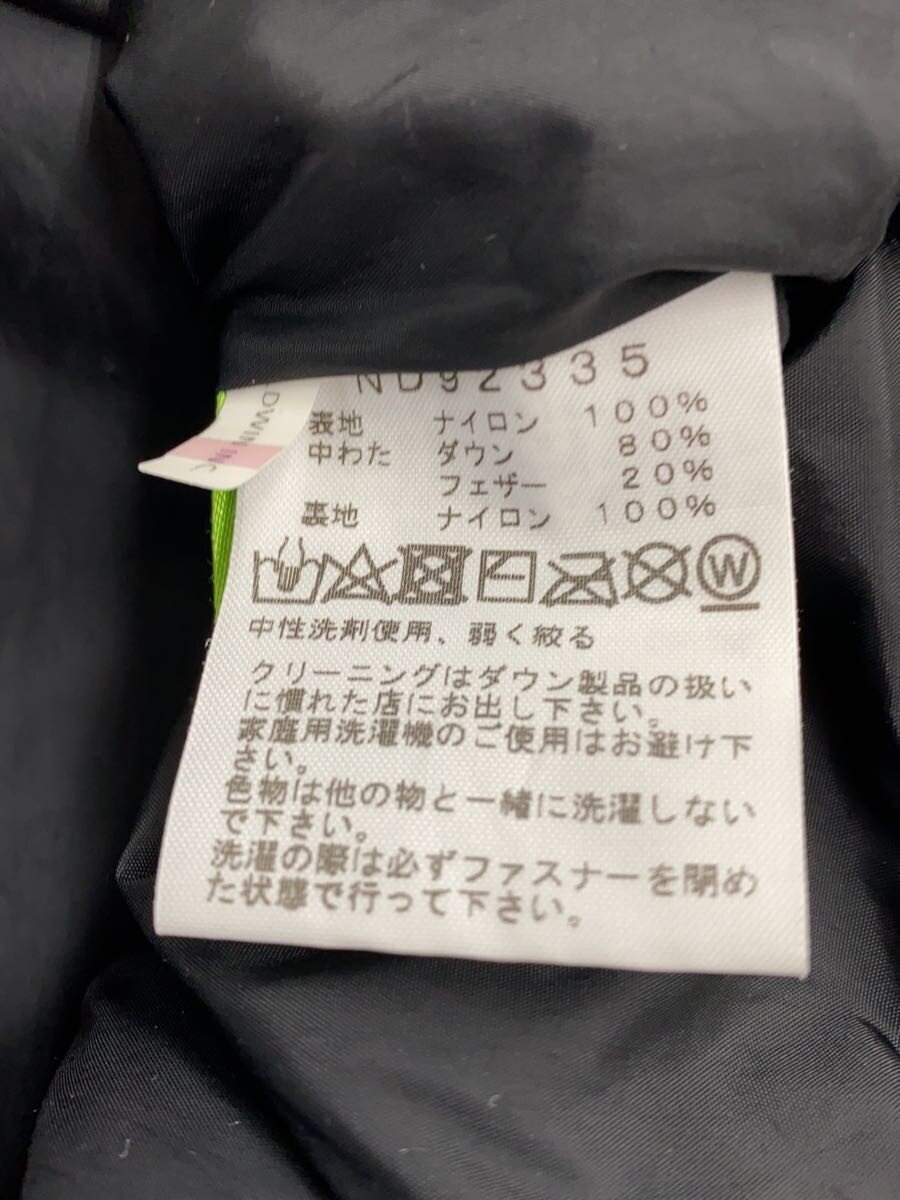 ND92335
表地 ナイロン 100%
中わた ダウン 80%
フェザー 20%
裏地 ナイロン 100%
W
中性洗剤使用、弱く絞る
クリーニングはダウン製品の扱い
に慣れた店にお出し下さい。
家庭用洗濯機のご使用はお避け下
さい。
色物は他の物と一緒に洗濯しない
で下さい。
洗濯の際は必ずファスナーを閉め
た状態で行って下さい。